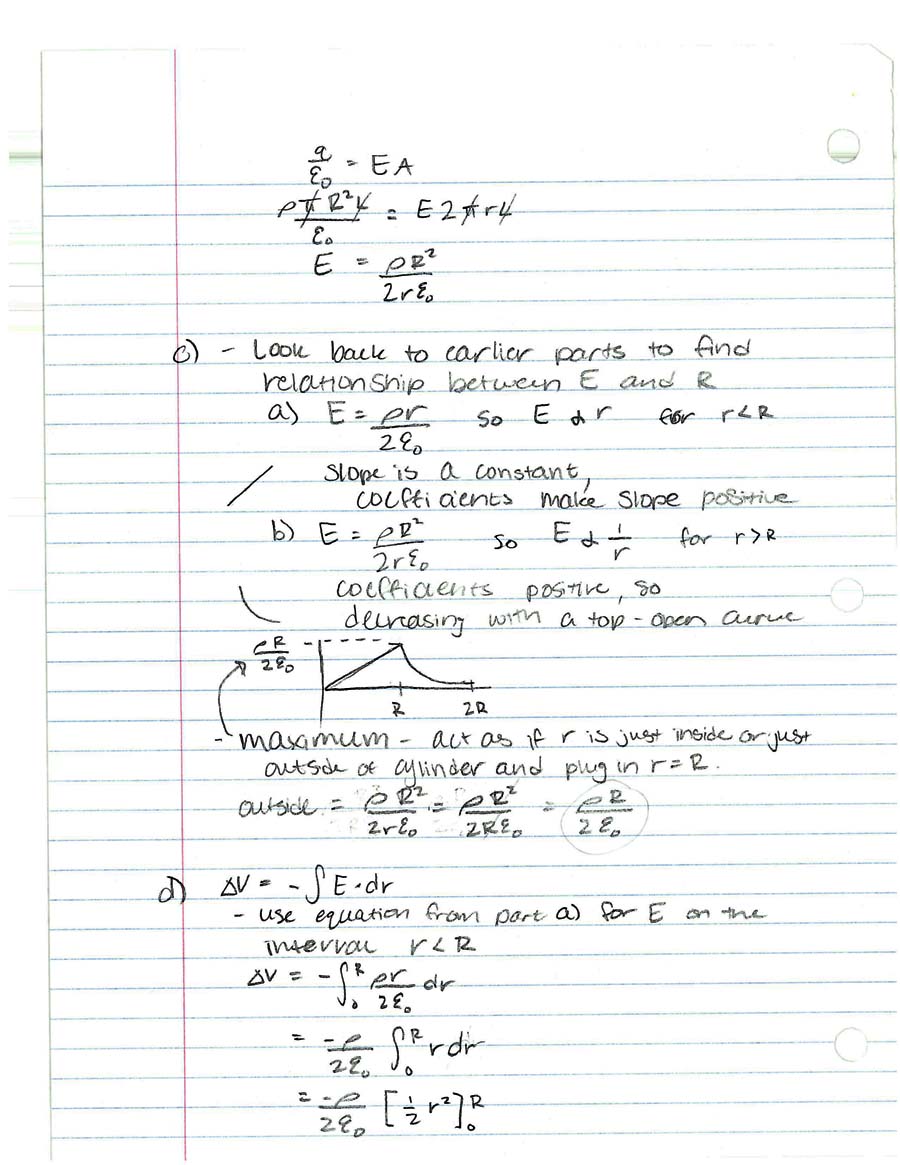 q/ε₀ = EA
ρπR²ℓ/ε₀ = E2πrℓ
E = ρR²/2rε₀
c) - Look back to earlier parts to find
relationship between E and R
a) E = ρr/2ε₀ so E α r for r<R
slope is a constant,
coefficients make slope positive
b) E = ρR²/2rε₀ so E α 1/r for r>R
coefficients positive, so
decreasing with a top-open curve
ρR/2ε₀
R 2R
- maximum - act as if r is just inside or just
outside of cylinder and plug in r=R.
outside = ρR²/2rε₀ = ρR²/2Rε₀ = ρR/2ε₀
d) ΔV = -∫E·dr
- use equation from part a) for E on the
interval r<R
ΔV = -∫₀ᴿ ρr/2ε₀ dr
= -ρ/2ε₀ ∫₀ᴿ r dr
= -ρ/2ε₀ [½r²]₀ᴿ